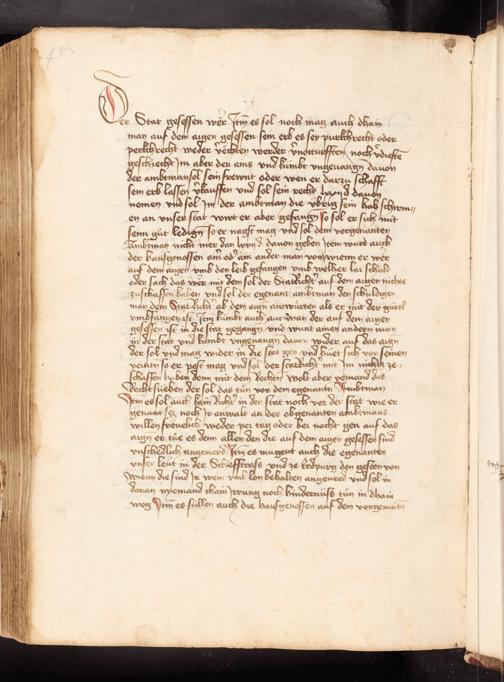 er Stat gesessen wer Item es sol noch mag auch dhain
man auf dem aigen gesessen sein erb es sey purkhrecht oder
perkhrecht weder noch
geschiecht Im aber der ains und kumbt ungevangn davon
der ambtman sol sein frewnt oder wen er darzu schafft
sein erb lassen verkauffen und sol sein recht davon
nemen und sol In der ambtman die ubrig sein hab
en an unser stat wirt er aber gefangn so sol er sich mit
seim gut ledign so er nagst mag und sol dem vorgenanten
Ambtman nicht mer dan davon geben Item wird auch
der hausgenossen ain oder ain ander man von wiem er wer
auf dem aigen umb den leib gefangen umb welher lai schuld
oder sach das wer mit dem sol der Statrichter auf den aigen nichts
zuschaffen haben und sol der egenant ambtman den schuldigen
man dem Stat Richter ab dem aign antwurtn als er mit der gurtl
umbfangen ist Item kumbt auch ainer der auf dem aigen
gesessen ist in die stat gegangn und wunt ainen andern man
in der stat und kumbt ungevangn davon wider auf das aign
der sol und mag wider in die stat gen und huet sich vor seinen
veintn so er pest mag und sol der statrichter mit Im nichts ze
schaffen haben denn mit dem rechtn wolt aber yemand das
Recht suchen der sol das tun vor dem egenantn Ambtman
Item es sol auch kain Richter in der stat noch vor der stat wie er
genant sey noch Ir anwalt an des obgenanten ambtmans
willen frevelich weder pei tag oder bei nacht gen auf das
aign er tue es dem allen den die auf dem aigen gesessen sind
unschedlich angeverd Item es mugent auch die egenanten
unser leut in der Scheffstrass und ze Erdpurg den gesten von
wienn die sind Ir wein umb lon behalten angeverd und sol in
daran nyemand chain Irrung noch hindernuss tun in dhain
weg Item es sullen auch die hausgenossen auf dem vorgenantn